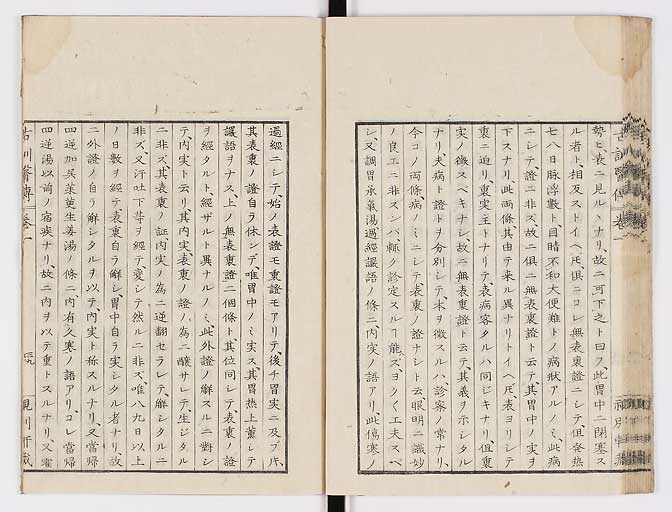 勢ヒ、表ニ見ルヽナリ、故ニ可下之ト曰フ、此胃中ニ閉塞ス
ル者ト、相反ストイヘ𪜈、俱ニコレ無表裏證ニシテ、但発熱
七八日脉浮數ト、目睛不和大便難トノ病狀アルノミ、此病
ニシテ、證ニ非ズ、故ニ俱ニ無表裏證ト云テ、其胃中ノ実ヲ
下スナリ、此両條其由テ来ル異ナリトイヘ𪜈、表ヨリシテ
裏ニ迫リ、裏実主トナリテ、表病客タルハ同ジキナリ、但裏
実ノ徴スベキナシ、故ニ無表裏證ト云テ、其義ヲ示シタル
ナリ、夫病ト證トヲ分別シテ、本ヲ微スルハ診察ノ常ナリ、
今コノ両條、病ノミニシテ、表裏ノ證ナシト云、眼明ニ識妙
ノ良工ニ非スンバ、輙ク診定スルヿ能ズ、ヨクヽ工夫スベ
シ、又調胃承氣湯、過經讝語ノ條ニ、内実ノ語アリ、此傷寒ノ
過經ニシテ、始ノ表證モ裏證モアリテ、後チ胃実ニ及ブ片、
其表裏ノ證自ラ休ンデ、唯胃中ノミ実ス、其胃热上薫シテ
讝語ヲナス、上ノ無表裏證二個條ト、其位同シテ、表裏ノ證
ヲ經タルト、經ザルト異ナルノミ、此外證ノ解スルニ對シ
テ、内実ト云リ、其内実、表裏ノ證ノ為ニ釀サレテ生ジタル
ニ非ズ、其表裏ノ証、内実ノ為ニ逆翻セラレテ、解シタルニ
非ズ、又汗吐下等ヲ經テ、変シテ然ルニ非ズ、唯八九日以上
ノ日數ヲ經テ、表裏自ラ解シ、胃中自ラ実シタル者ナリ、故
ニ外證ノ自ラ解シタルヲ以テ、内実ト称スルナリ、又當帰
四逆加吳茱萸生姜湯ノ條ニ、内有久寒ノ語アリ、コレ當帰
四逆湯以前ノ宿疾ナリ、故ニ内ヲ以テ重トスルナリ、又霍
古訓醫傳 卷一